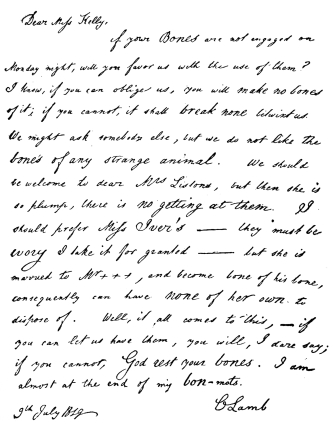 Dear Miss Kelly,
if your Bones are not engaged on
Monday night, will you favor us with the use of them?
I know, if you can oblige us, you will make no bones
of it; if you cannot, it shall break none betwixt us.
We might ask somebody else, but we do not like the
bones of any strange animal. We should
be welcome to dear Mrs Listons, but then she is
so plump, there is no getting at them. I
should prefer Miss Iver's — they must be
ivory I take it for granted — but she is
married to Mr +++, and become bone of his bone,
consequently can have none of her own to
dispose of. Well, it all comes to this, — if
you can let us have them, you will, I dare say;
if you cannot, God rest your bones. I am
almost at the end of my bon-mots.
C Lamb
9th July 1819